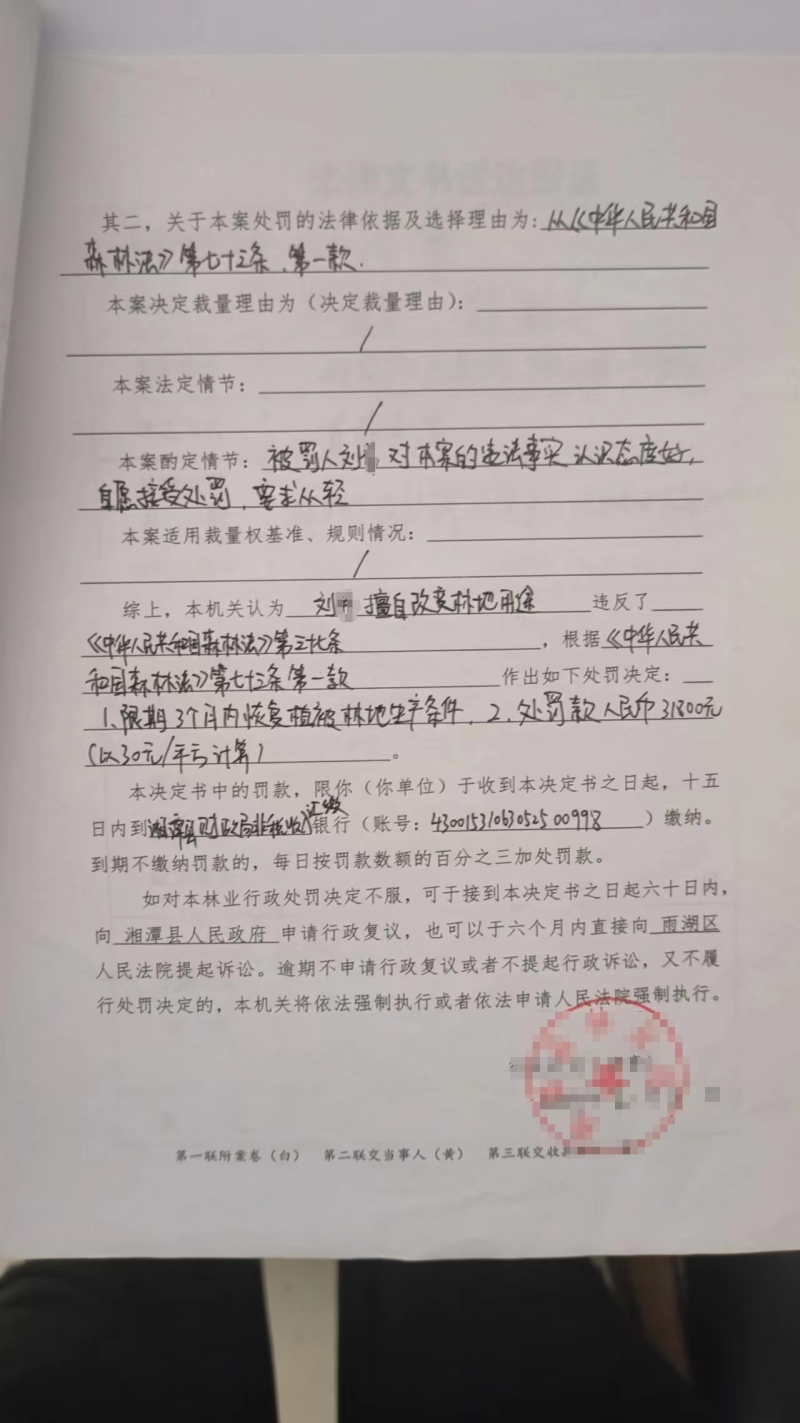 其二，关于本案处罚的法律依据及选择理由为：从《中华人民共和国
森林法》第七十三条、第一款.
本案决定裁量理由为（决定裁量理由）：
/
本案法定情节：
/
本案酌定情节：被罚人刘 对本案的违法事实认识态度好，
自愿接受处罚，要求从轻
本案适用裁量权基准、规则情况：
/
综上，本机关认为 刘 擅自改变林地用途 违反了
《中华人民共和国森林法》第三十七条，根据《中华人民共
和国森林法》第七十三条第一款 作出如下处罚决定：
1、限期3个月内恢复植被林地生产条件，2、处罚款人民币31800元
（以30元/平方计算）。
本决定书中的罚款，限你（你单位）于收到本决定书之日起，十五
日内到湘潭县财政局非税收入汇缴银行（账号：43001531063052500998）缴纳。
到期不缴纳罚款的，每日按罚款数额的百分之三加处罚款。
如对本林业行政处罚决定不服，可于接到本决定书之日起六十日内，
向 湘潭县人民政府 申请行政复议，也可以于六个月内直接向 雨湖区
人民法院提起诉讼。逾期不申请行政复议或者不提起行政诉讼，又不履
行处罚决定的，本机关将依法强制执行或者依法申请人民法院强制执行。
第一联附案卷（白） 第二联交当事人（黄） 第三联交收